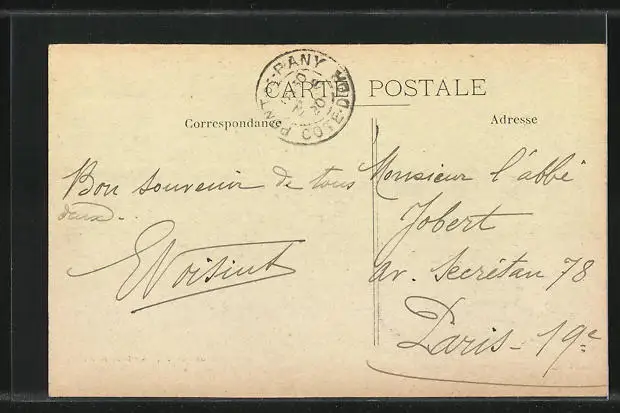 CARTE POSTALE
Correspondance
Adresse
Bon souvenir de tous
deux.
EVoisint
Monsieur l'abbé
Jobert
av. Secrétan 78
Paris - 19e